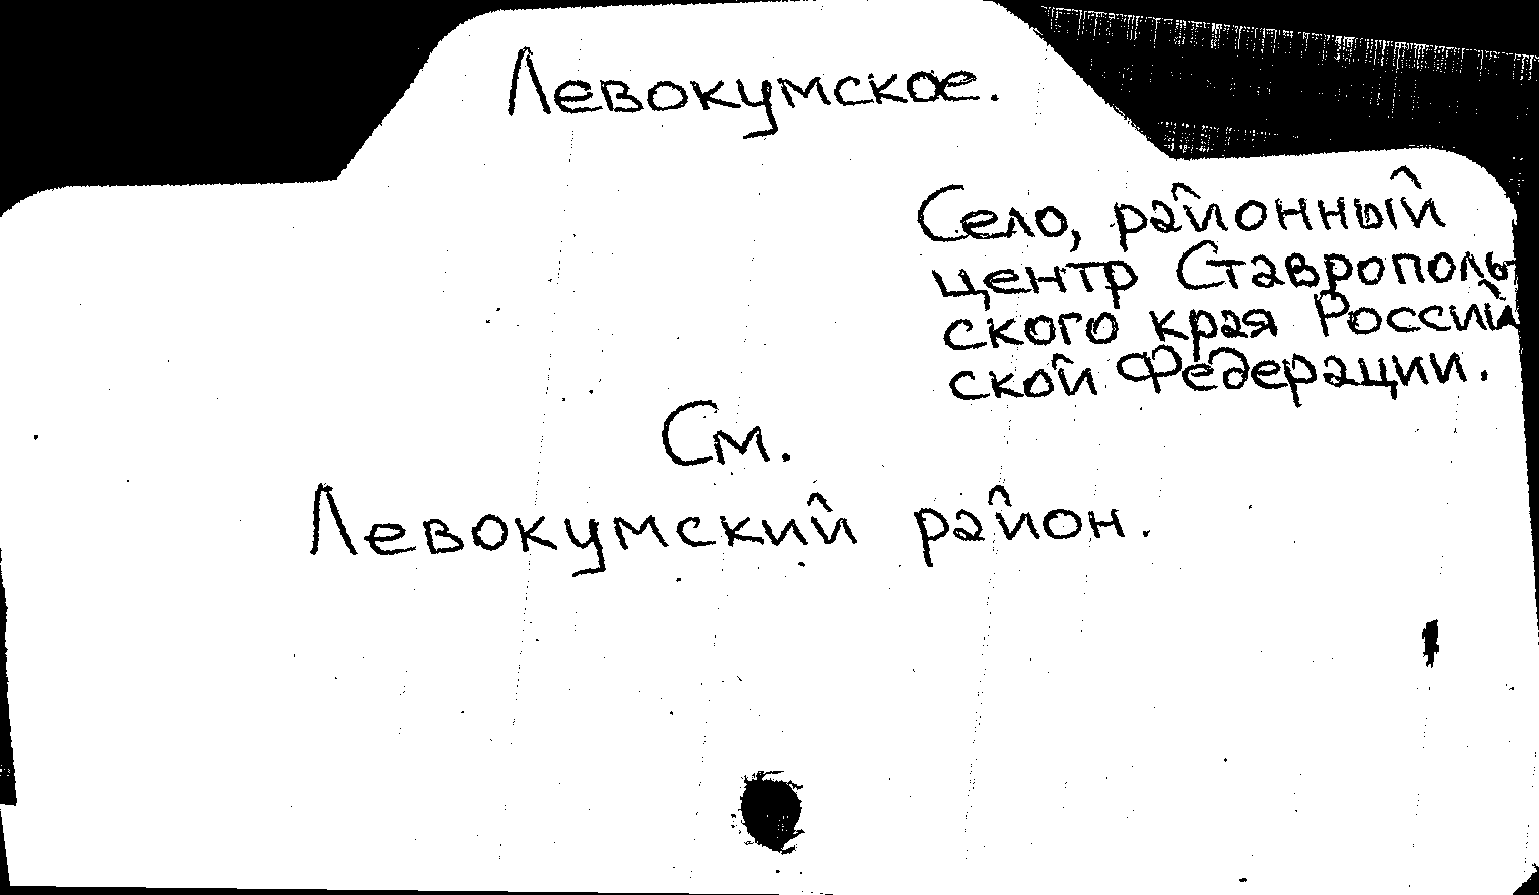 Левокумское.
Село, районный
центр Ставрополь-
ского края Россий
ской Федерации.
См.
Левокумский район.